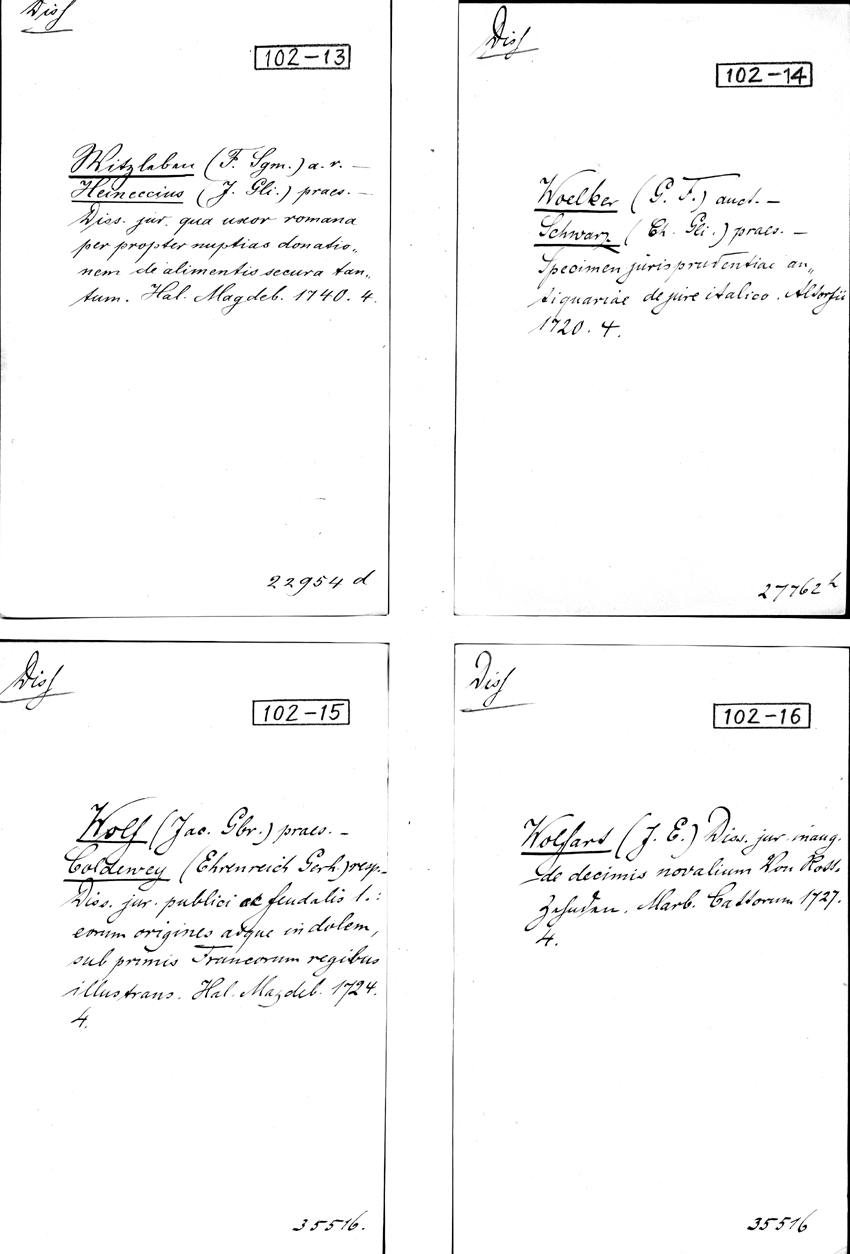 Diss
102-13
Witzleben (F. Sgm.) a. r. —
Heineccius (J. Gli.) praes. —
Diss. jur. qua uxor romana
per propter nuptias donatio„
nem de alimentis secura tan„
tum. Hal. Magdeb. 1740. 4.
22954 d
Diss
102-14
Woelker (G. F.) auct. —
Schwarz (Ch. Gli.) praes. —
Specimen jurisprudentiae an„
tiquariae de jure italico. Altorfii
1720. 4.
27762 h
Diss
102-15
Wolf (Jac. Gbr.) praes. —
Coldewey (Ehrenreich Gerh.) resp.—
Diss. jur. publici ac feudalis 1.:
eorum origines atque indolem,
sub primis Francorum regibus
illustrans. Hal. Magdeb. 1724.
4.
35516.
Diss
102-16
Wolfart (J. E.) Diss. jur. inaug.
de decimis novalium Von Rott„
Zehnden. Marb. Cattorum 1727.
4.
35516